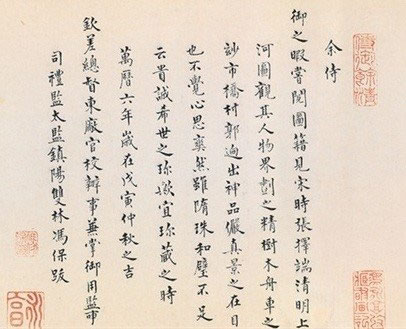 余侍
御之暇嘗閱圖籍見宋時張擇端清明上
河圖觀其人物界劃之精樹木舟車之
妙市橋村郭迥出神品儼真景之在目
也不覺心思爽然雖隋珠和璧不足
云貴誠希世之珍歟宜珍藏之時
萬曆六年歲在戊寅仲秋之吉
欽差總督東廠官校辦事兼掌御用監事
司禮監太監鎮陽雙林馮保跋